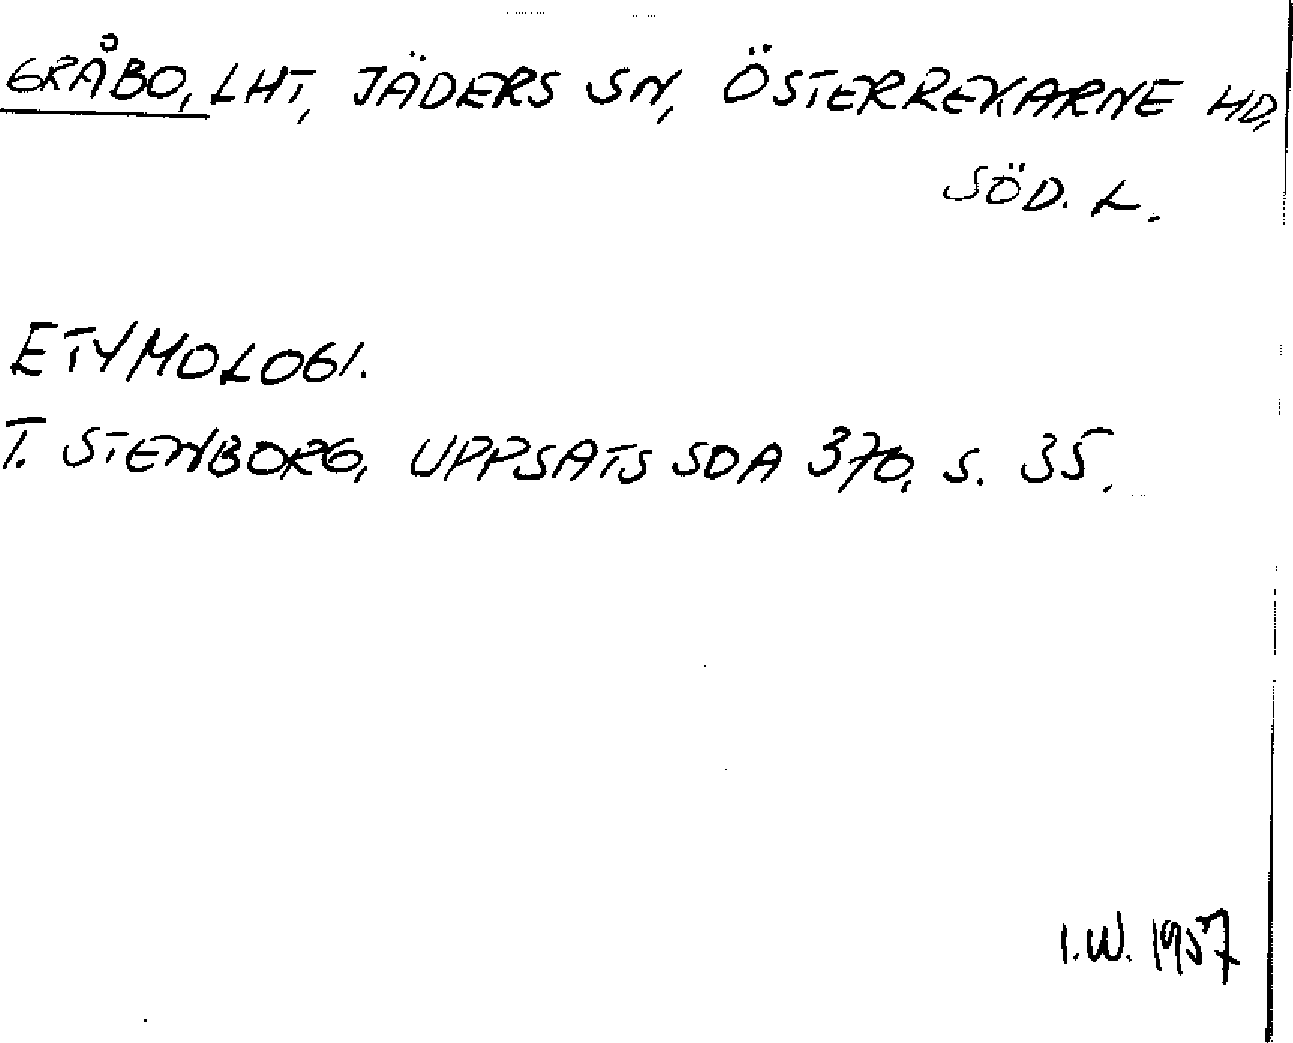 GRÅBO, LHT, JÄDERS SN, ÖSTERREKARNE HD,
SÖD. L.
ETYMOLOGI.
T. STENBORG, UPPSATS SOA 370, S. 35.
I.W. 1957